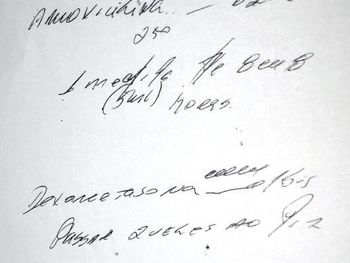 Amoxicilina — 
250
1 medida de 8 em 8
(5ml) horas.
Dexametasona
Passar 2 vezes ao dia